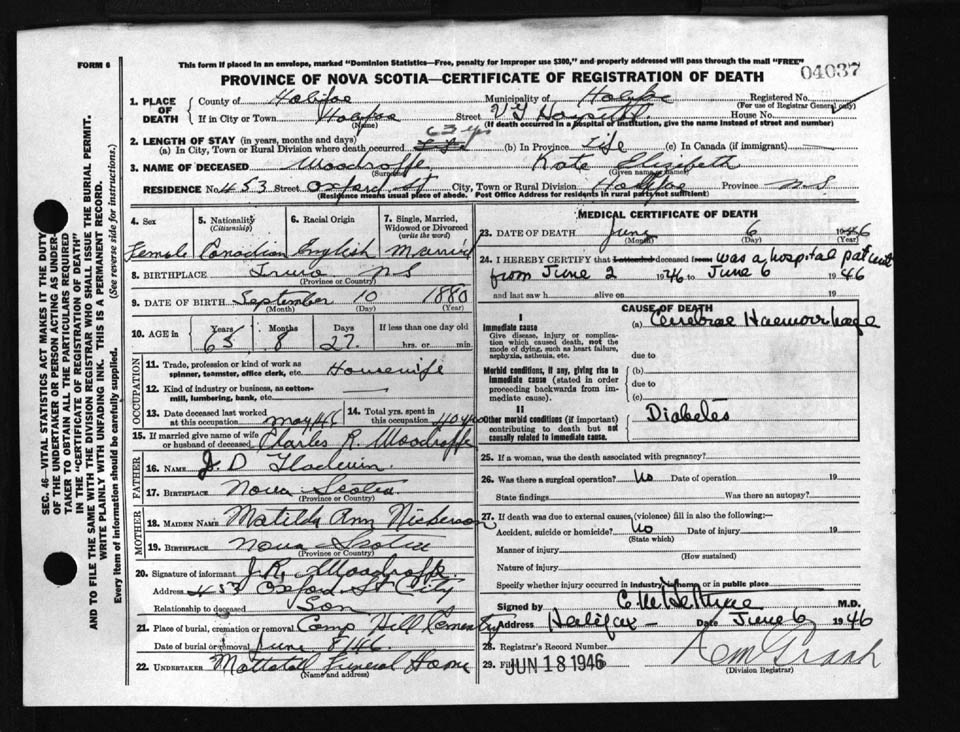 FORM 6
This form if placed in an envelope, marked "Dominion Statistics—Free, penalty for improper use $300," and properly addressed will pass through the mail "FREE"
PROVINCE OF NOVA SCOTIA—CERTIFICATE OF REGISTRATION OF DEATH
04037
SEC. 46—VITAL STATISTICS ACT MAKES IT THE DUTY
OF THE UNDERTAKER OR PERSON ACTING AS UNDER-
TAKER TO OBTAIN ALL THE PARTICULARS REQUIRED
IN THE "CERTIFICATE OF REGISTRATION OF DEATH"
AND TO FILE THE SAME WITH THE DIVISION REGISTRAR WHO SHALL ISSUE THE BURIAL PERMIT.
WRITE PLAINLY WITH UNFADING INK. THIS IS A PERMANENT RECORD.
Every item of information should be carefully supplied. (See reverse side for instructions.)
1. PLACE OF DEATH County of Halifax Municipality of Halifax Registered No.
(For use of Registrar General only)
If in City or Town Halifax Street V G Hospital House No.
(Name) (If death occurred in a hospital or institution, give the name instead of street and number)
2. LENGTH OF STAY (in years, months and days) 63 yrs
(a) In City, Town or Rural Division where death occurred (b) In Province Life (c) In Canada (if immigrant)
3. NAME OF DECEASED Woodroffe Kate Elizabeth
(Surname) (Given name or names)
RESIDENCE No. 453 Street Oxford St City, Town or Rural Division Halifax Province N S
(Residence means usual place of abode. Post Office Address for residents in rural parts not sufficient)
4. Sex 5. Nationality (Citizenship) 6. Racial Origin 7. Single, Married, Widowed or Divorced (write the word)
Female Canadian English Married
8. BIRTHPLACE Truro N S
(Province or Country)
9. DATE OF BIRTH September 10 1880
(Month) (Day) (Year)
10. AGE in Years Months Days If less than one day old
65 8 27 hrs. or min.
OCCUPATION
11. Trade, profession or kind of work as spinner, teamster, office clerk, etc. Housewife
12. Kind of industry or business, as cotton-mill, lumbering, bank, etc.
13. Date deceased last worked at this occupation May/46 14. Total yrs. spent in this occupation 40 yrs
15. If married give name of wife or husband of deceased Charles R. Woodroffe
FATHER
16. NAME J. D
17. BIRTHPLACE Nova Scotia
(Province or Country)
MOTHER
18. MAIDEN NAME Matilda Ann Nickerson
19. BIRTHPLACE Nova Scotia
(Province or Country)
20. Signature of informant J. R. Woodroffe
Address 453 Oxford St City
Relationship to deceased Son
21. Place of burial, cremation or removal Camp Hill Cemetery
Date of burial or removal June 8/46
22. UNDERTAKER Mattatall Funeral Home
(Name and address)
MEDICAL CERTIFICATE OF DEATH
23. DATE OF DEATH June 6 1946
(Month) (Day) (Year)
24. I HEREBY CERTIFY that I attended deceased from was a hospital patient
from June 2 1946 to June 6 1946
and last saw h alive on 19
CAUSE OF DEATH
I
Immediate cause (a) Cerebral Haemorrhage
Give disease, injury or complication which caused death, not the mode of dying, such as heart failure, asphyxia, asthenia, etc.
due to
Morbid conditions, if any, giving rise to immediate cause (stated in order proceeding backwards from immediate cause). (b)
due to
(c)
II
Other morbid conditions (if important) contributing to death but not causally related to immediate cause. Diabetes
25. If a woman, was the death associated with pregnancy?
26. Was there a surgical operation? No Date of operation 19
State findings Was there an autopsy?
27. If death was due to external causes (violence) fill in also the following:—
Accident, suicide or homicide? No Date of injury 19
(State which)
Manner of injury
(How sustained)
Nature of injury
Specify whether injury occurred in industry, in home or in public place
Signed by M.D.
Address Halifax Date June 6 1946
28. Registrar's Record Number
29. Filed JUN 18 1946
(Division Registrar)